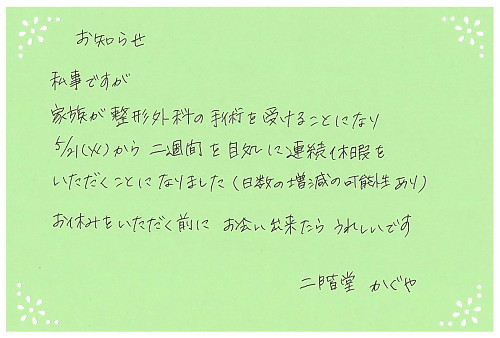 お知らせ
私事ですが
家族が整形外科の手術を受けることになり
5/21(火)から二週間を目処に連続休暇を
いただくことになりました(日数の増減の可能性あり)
お休みをいただく前に お会い出来たらうれしいです
二階堂 かぐや